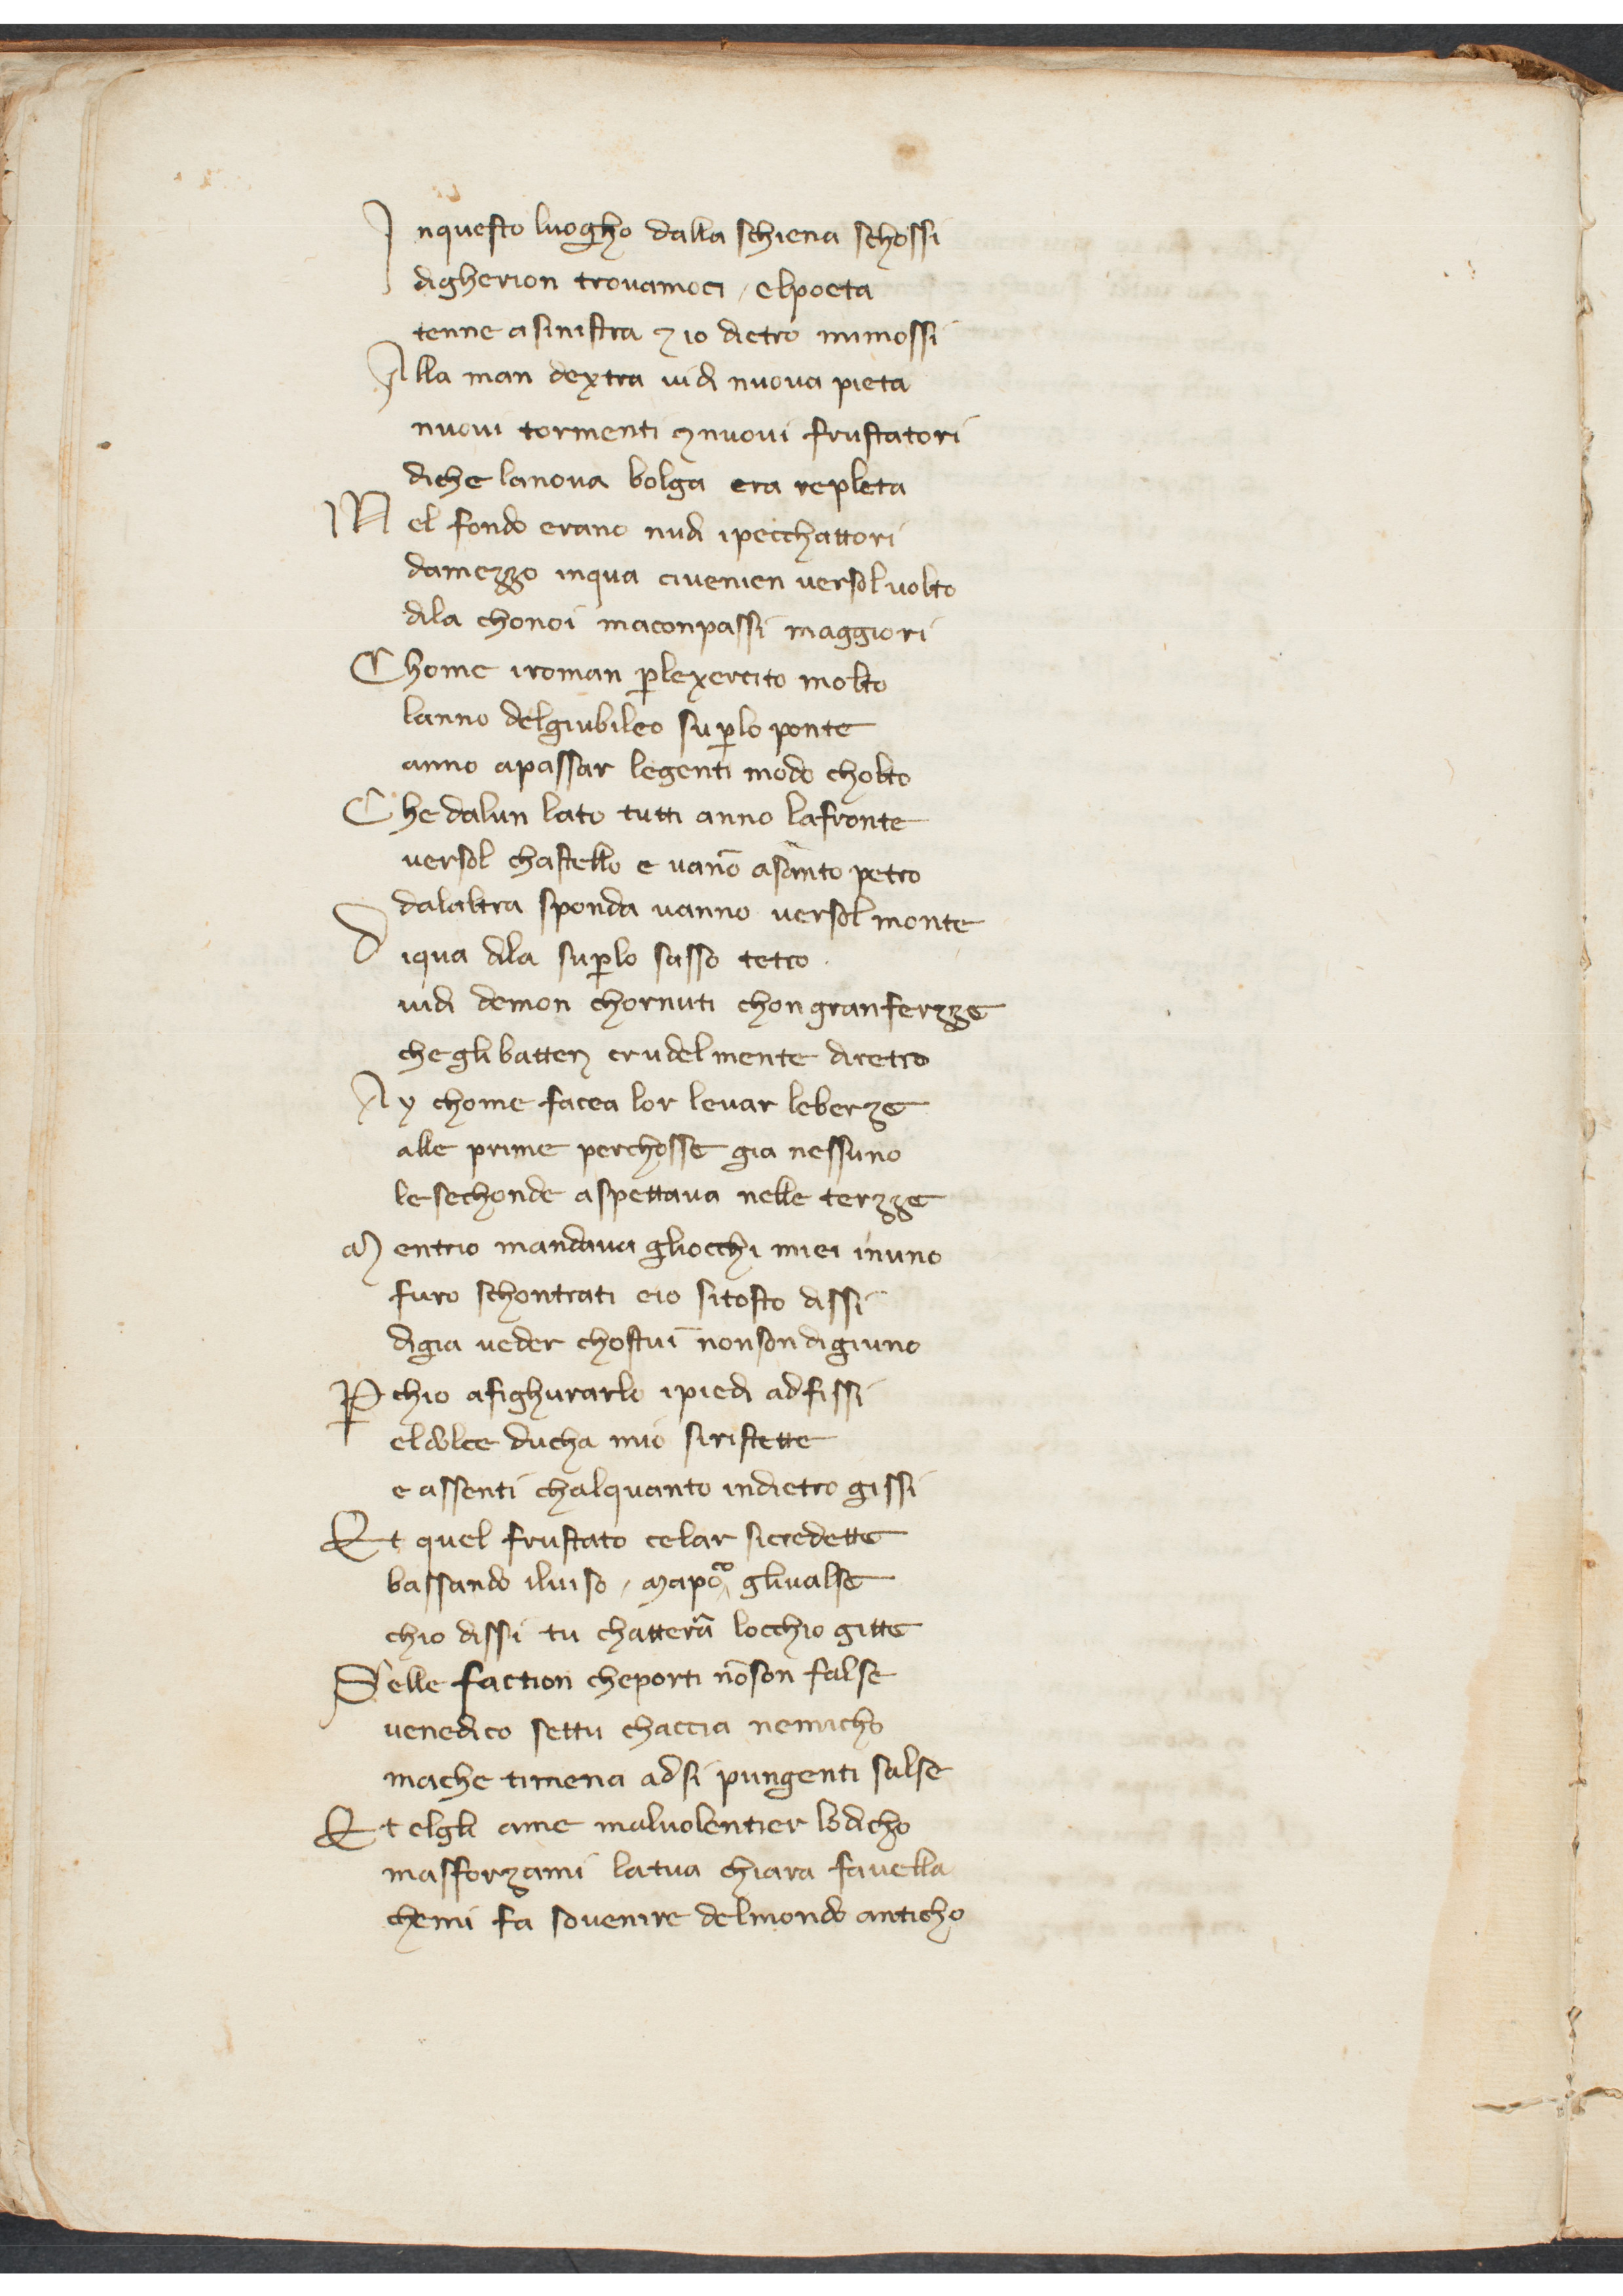 Inquesto luogho dalla schiena schossi
digherion trovamoci / elpoeta
tenne asinistra ⁊ io dietro mimossi
Alla man dextra uidi nuova pieta
nuoui tormenti ⁊nuoui frustatori
diche lanova bolga era repleta
Nel fondo erano nudi ipecchattori
damezzo inqua ciuenien versol uolto
dila chonoi maconpassi maggiori
Chome iroman ꝑlexercito molto
lanno delgiubileo suꝑlo ponte
anno apassar legenti modo cholto
Che dalun lato tutti anno lafronte
versol chastello e vanō asānto petro
dalaltra sponda vanno versol monte
Diqua dila suꝑlo sasso tetro
uidi demon chornuti chon granferzze
che gli batten crudelmente diretro
Ay chome facea lor levar leberze
alle prime perchosse gia nessuno
le sechonde aspettava nelle terzze
Mentrio mandava gliocchi miei inuno
furo schontrati eio sitosto dissi
digia veder chostui nonson digiuno
Ꝑchio afighurarlo ipiedi adfissi
eldolce ducha mio siristette
e assenti chalquanto indietro gissi
Et quel frustato celar sicredette
bassando iluiso / mapoco glivalse
chio dissi tu chatterā locchio gitte
Selle faction cheporti nōson false
venedico settu chaccia nemicho
mache timena adsi pungenti salse
Et elgli ame maluolentier lodicho
masforzami latua chiara favella
chemi fa sovenire delmondo anticho